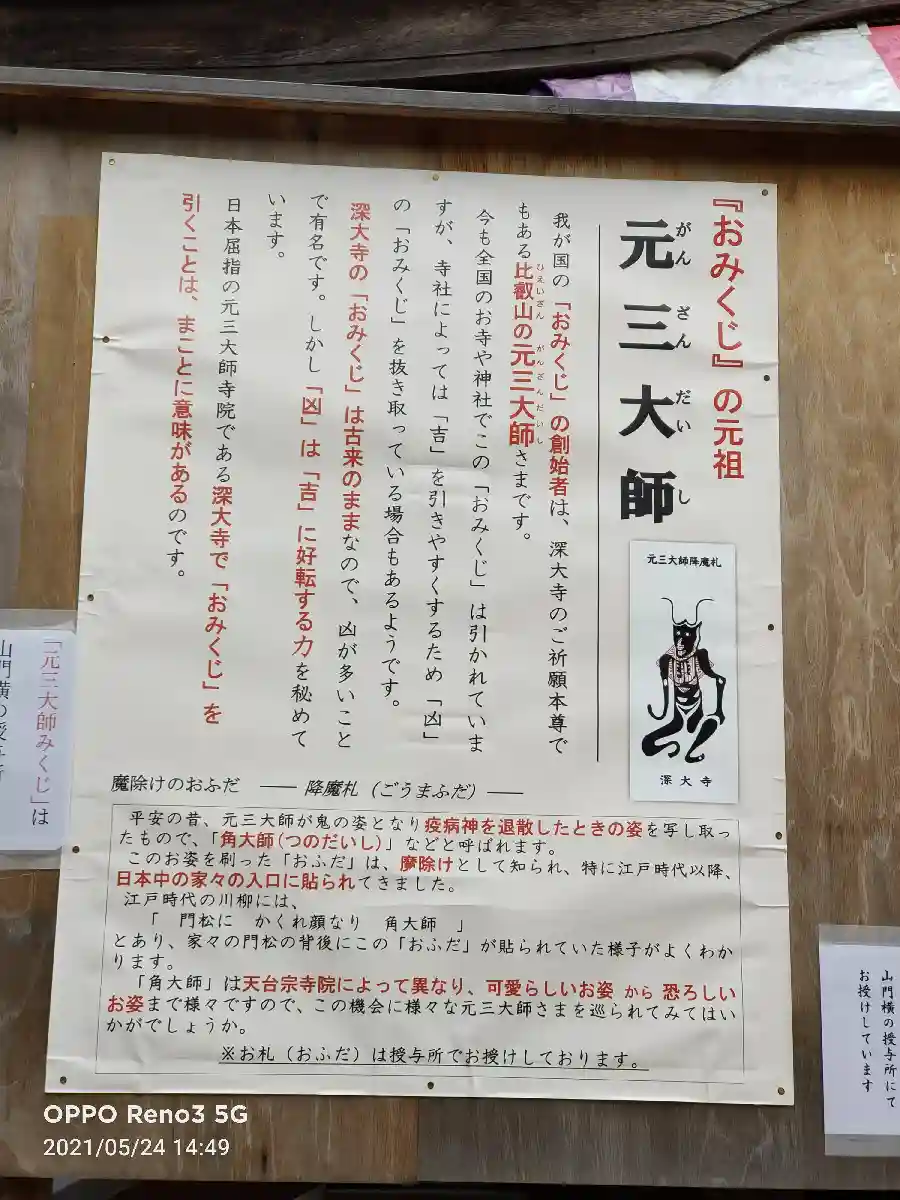 『おみくじ』の元祖
元三大師
がんざんだいし
我が国の「おみくじ」の創始者は、深大寺のご祈願本尊で
もある比叡山の元三大師さまです。
ひえいざん がんざんだいし
今も全国のお寺や神社でこの「おみくじ」は引かれていま
すが、寺社によっては「吉」を引きやすくするため「凶」
の「おみくじ」を抜き取っている場合もあるようです。
深大寺の「おみくじ」は古来のままなので、凶が多いこと
で有名です。しかし「凶」は「吉」に好転する力を秘めて
います。
日本屈指の元三大師寺院である深大寺で「おみくじ」を
引くことは、まことに意味があるのです。
元三大師降魔札
深大寺
魔除けのおふだ ―― 降魔札（ごうまふだ）――
平安の昔、元三大師が鬼の姿となり疫病神を退散したときの姿を写し取っ
たもので、「角大師（つのだいし）」などと呼ばれます。
このお姿を刷った「おふだ」は、魔除けとして知られ、特に江戸時代以降、
日本中の家々の入口に貼られてきました。
江戸時代の川柳には、
「 門松に かくれ顔なり 角大師 」
とあり、家々の門松の背後にこの「おふだ」が貼られていた様子がよくわか
ります。
「角大師」は天台宗寺院によって異なり、可愛らしいお姿 から 恐ろしい
お姿まで様々ですので、この機会に様々な元三大師さまを巡られてみてはい
かがでしょうか。
※お札（おふだ）は授与所でお授けしております。
「元三大師みくじ」は
山門横の授与所
山門横の授与所にて
お授けしています
OPPO Reno3 5G
2021/05/24 14:49